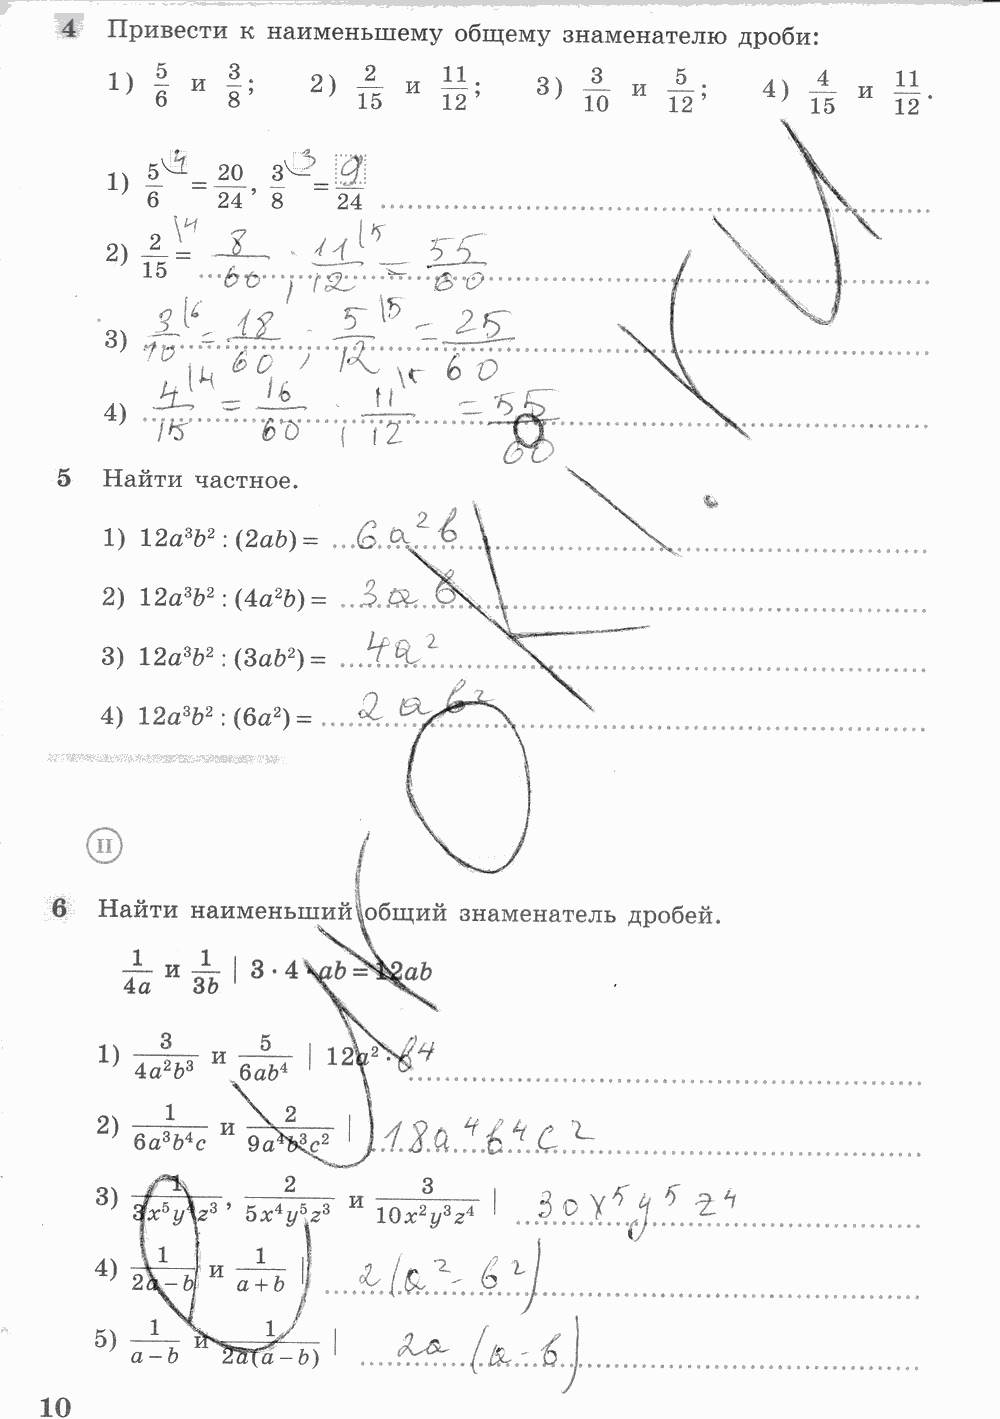 4 Привести к наименьшему общему знаменателю дроби:
1) 5/6 и 3/8; 2) 2/15 и 11/12; 3) 3/10 и 5/12; 4) 4/15 и 11/12.
1) 5/6 \4 = 20/24, 3/8 \3 = 9/24
2) 2/15 \4 = 8/60 ; 11/12 \5 = 55/60
3) 3/10 \6 = 18/60 ; 5/12 \5 = 25/60
4) 4/15 \4 = 16/60 ; 11/12 \5 = 55/60
5 Найти частное.
1) 12a³b² : (2ab) = 6a²b
2) 12a³b² : (4a²b) = 3ab
3) 12a³b² : (3ab²) = 4a²
4) 12a³b² : (6a²) = 2ab²
II
6 Найти наименьший общий знаменатель дробей.
1/4a и 1/3b | 3 · 4 · ab = 12ab
1) 3/4a²b³ и 5/6ab⁴ | 12a² · b⁴
2) 1/6a³b⁴c и 2/9a⁴b³c² | 18a⁴b⁴c²
3) 1/3x⁵y⁴z³, 2/5x⁴y⁵z³ и 3/10x²y³z⁴ | 30x⁵y⁵z⁴
4) 1/2a – b и 1/a + b | 2(a² - b²)
5) 1/a – b и 1/2a(a – b) | 2a(a - b)
10